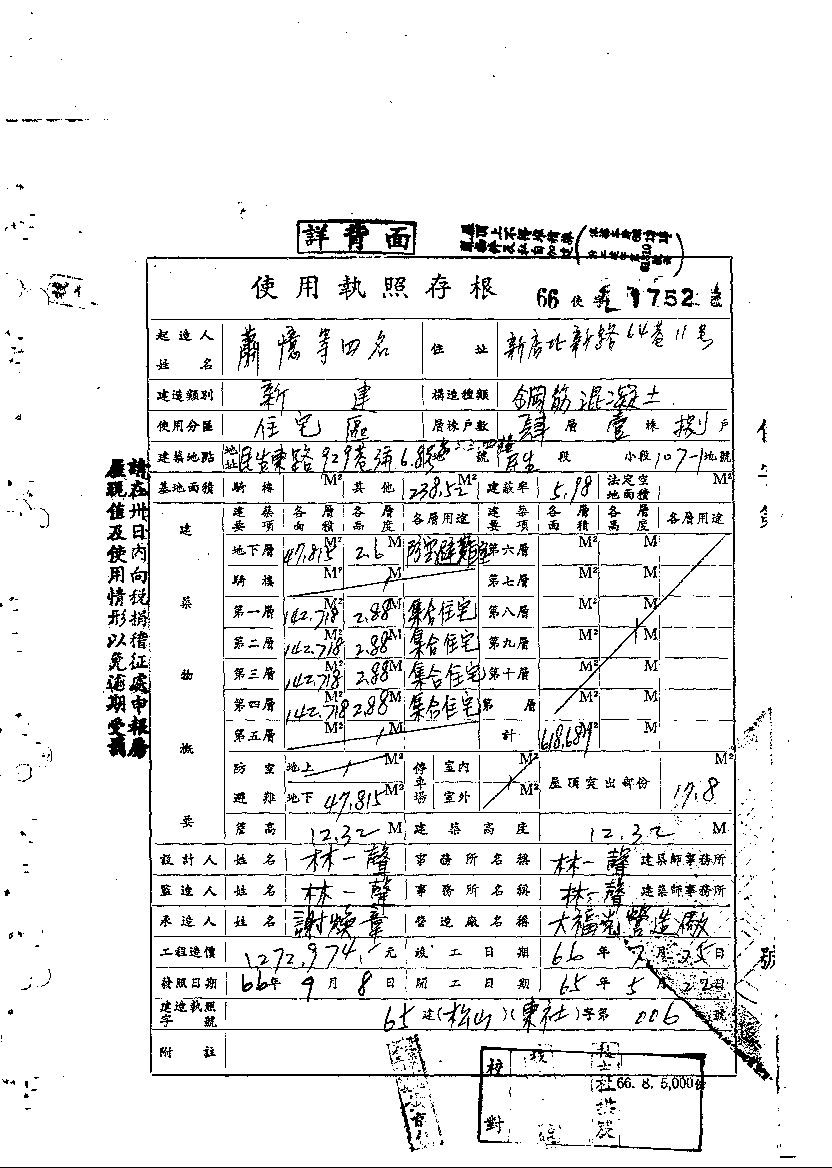 詳背面
使用執照存根 66 使字 1752
起造人姓名 蕭憶等四名 住址 新店北新路64巷11号
建造類別 新建 構造種類 鋼筋混凝土
使用分區 住宅區 層棟戶數 肆層 壹棟 捌戶
建築地點 地址 民生東路929巷 號 民生段 小段 107-1地號
基地面積 騎樓 M² 其他 238.52 M² 建蔽率 5.98 法定空地面積 M²
建築物概要 建築要項 各層面積 各層高度 各層用途 建築要項 各層面積 各層高度 各層用途
地下層 47.815 M² 2.6 M 防空避難室 第六層 M² M
騎樓 M² M 第七層 M² M
第一層 142.718 M² 2.88 M 集合住宅 第八層 M² M
第二層 142.718 M² 2.88 M 集合住宅 第九層 M² M
第三層 142.718 M² 2.88 M 集合住宅 第十層 M² M
第四層 142.718 M² 2.88 M 集合住宅 第 層 M² M
第五層 M² M 計 618.687 M² M
防空避難 地上 M² 停車場 室內 M² 屋頂突出部份 17.8
地下 47.815 M² 室外 M²
簷高 12.32 M 建築高度 12.32 M
設計人 姓名 林一聲 事務所名稱 林一聲 建築師事務所
監造人 姓名 林一聲 事務所名稱 林一聲 建築師事務所
承造人 姓名 謝煥章 營造廠名稱 大福光營造廠
工程造價 1272,974.- 元 竣工日期 66年7月25日
發照日期 66年9月8日 開工日期 65年5月22日
建造執照字號 65建(松山)(東社)字第006號
附註
校對
66.8.5,000
請在卅日內向稅捐稽征處申報房
屋現值及使用情形以免逾期受罰
號